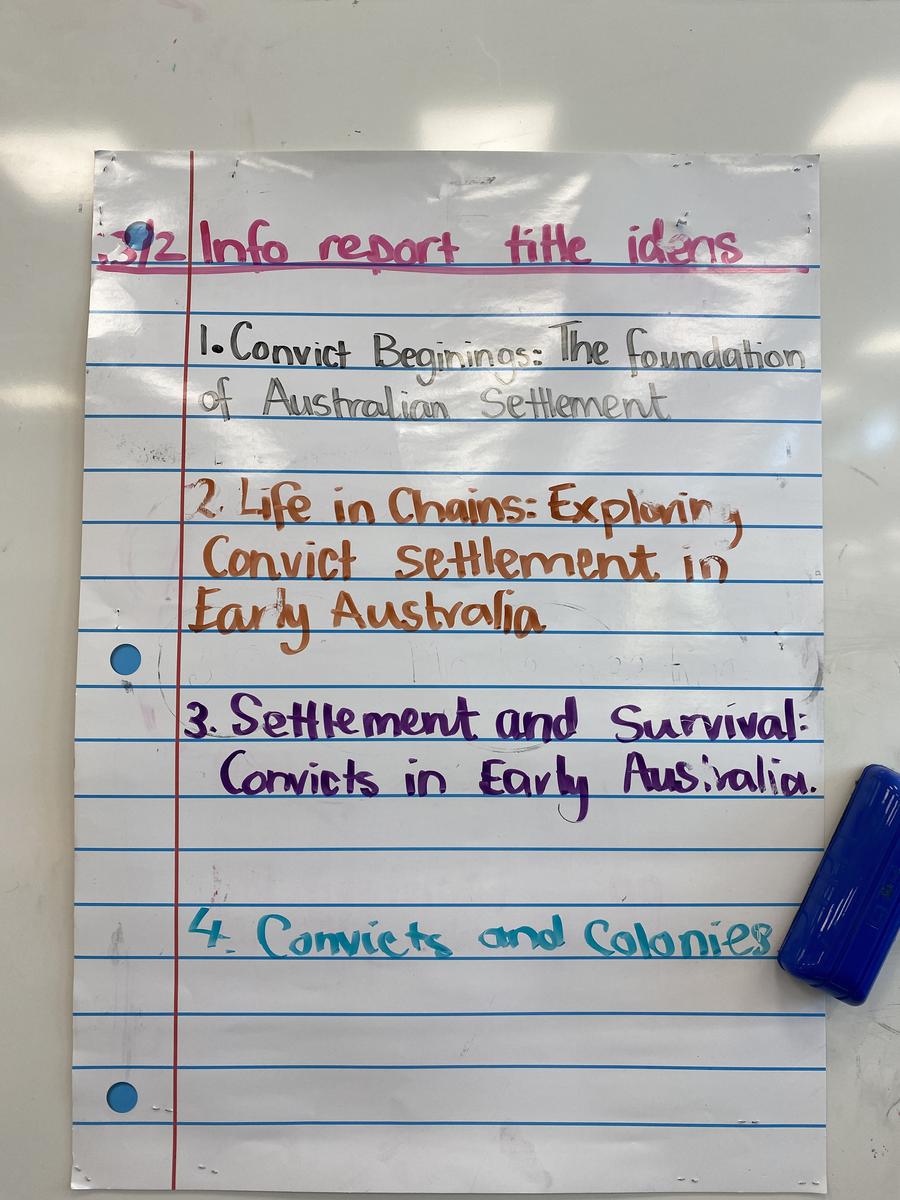 3/2 Info report title ideas
1. Convict Beginings: The foundation
of Australian Settlement
2. Life in Chains: Exploring
Convict settlement in
Early Australia
3. Settlement and Survival:
Convicts in Early Australia.
4. Convicts and Colonies